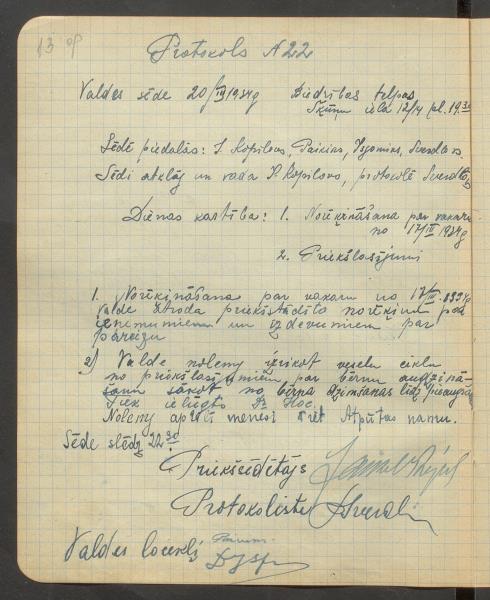 13 op
Protokols N 22
Valdes sēde 20/III 1934g Biedrības telpas
Šķūņu ielā 12/14 pl. 19.30
Sēdē piedalās: J. Kopilovs, Paikins, Sverdlovs.
Sēdi atklāj un vada Kopilovs, protokolē Sverdlovs
Dienas kārtība: 1. Norēķināšana par vakaru
no 17/III 1934g
2. Priekšlasījumi
1. Norēķināšana par vakaru no 17/III 1934g
Valde atroda priekšstādīto norēķinu par
ieņēmumiem un izdevumiem par
pareizu
2) Valde nolemj izrīkot veselu ciklu
no priekšlasījumiem par bērnu audzinā-
šanu sākot no bērna dzimšanas līdz
Tiek ielūgts Dr.
Nolemj aprīlī mēnesī rīkot Atpūtas namu.
Sēde slēdz 22 30
Priekšsēdētājs
Protokolists
Valdes locekļi